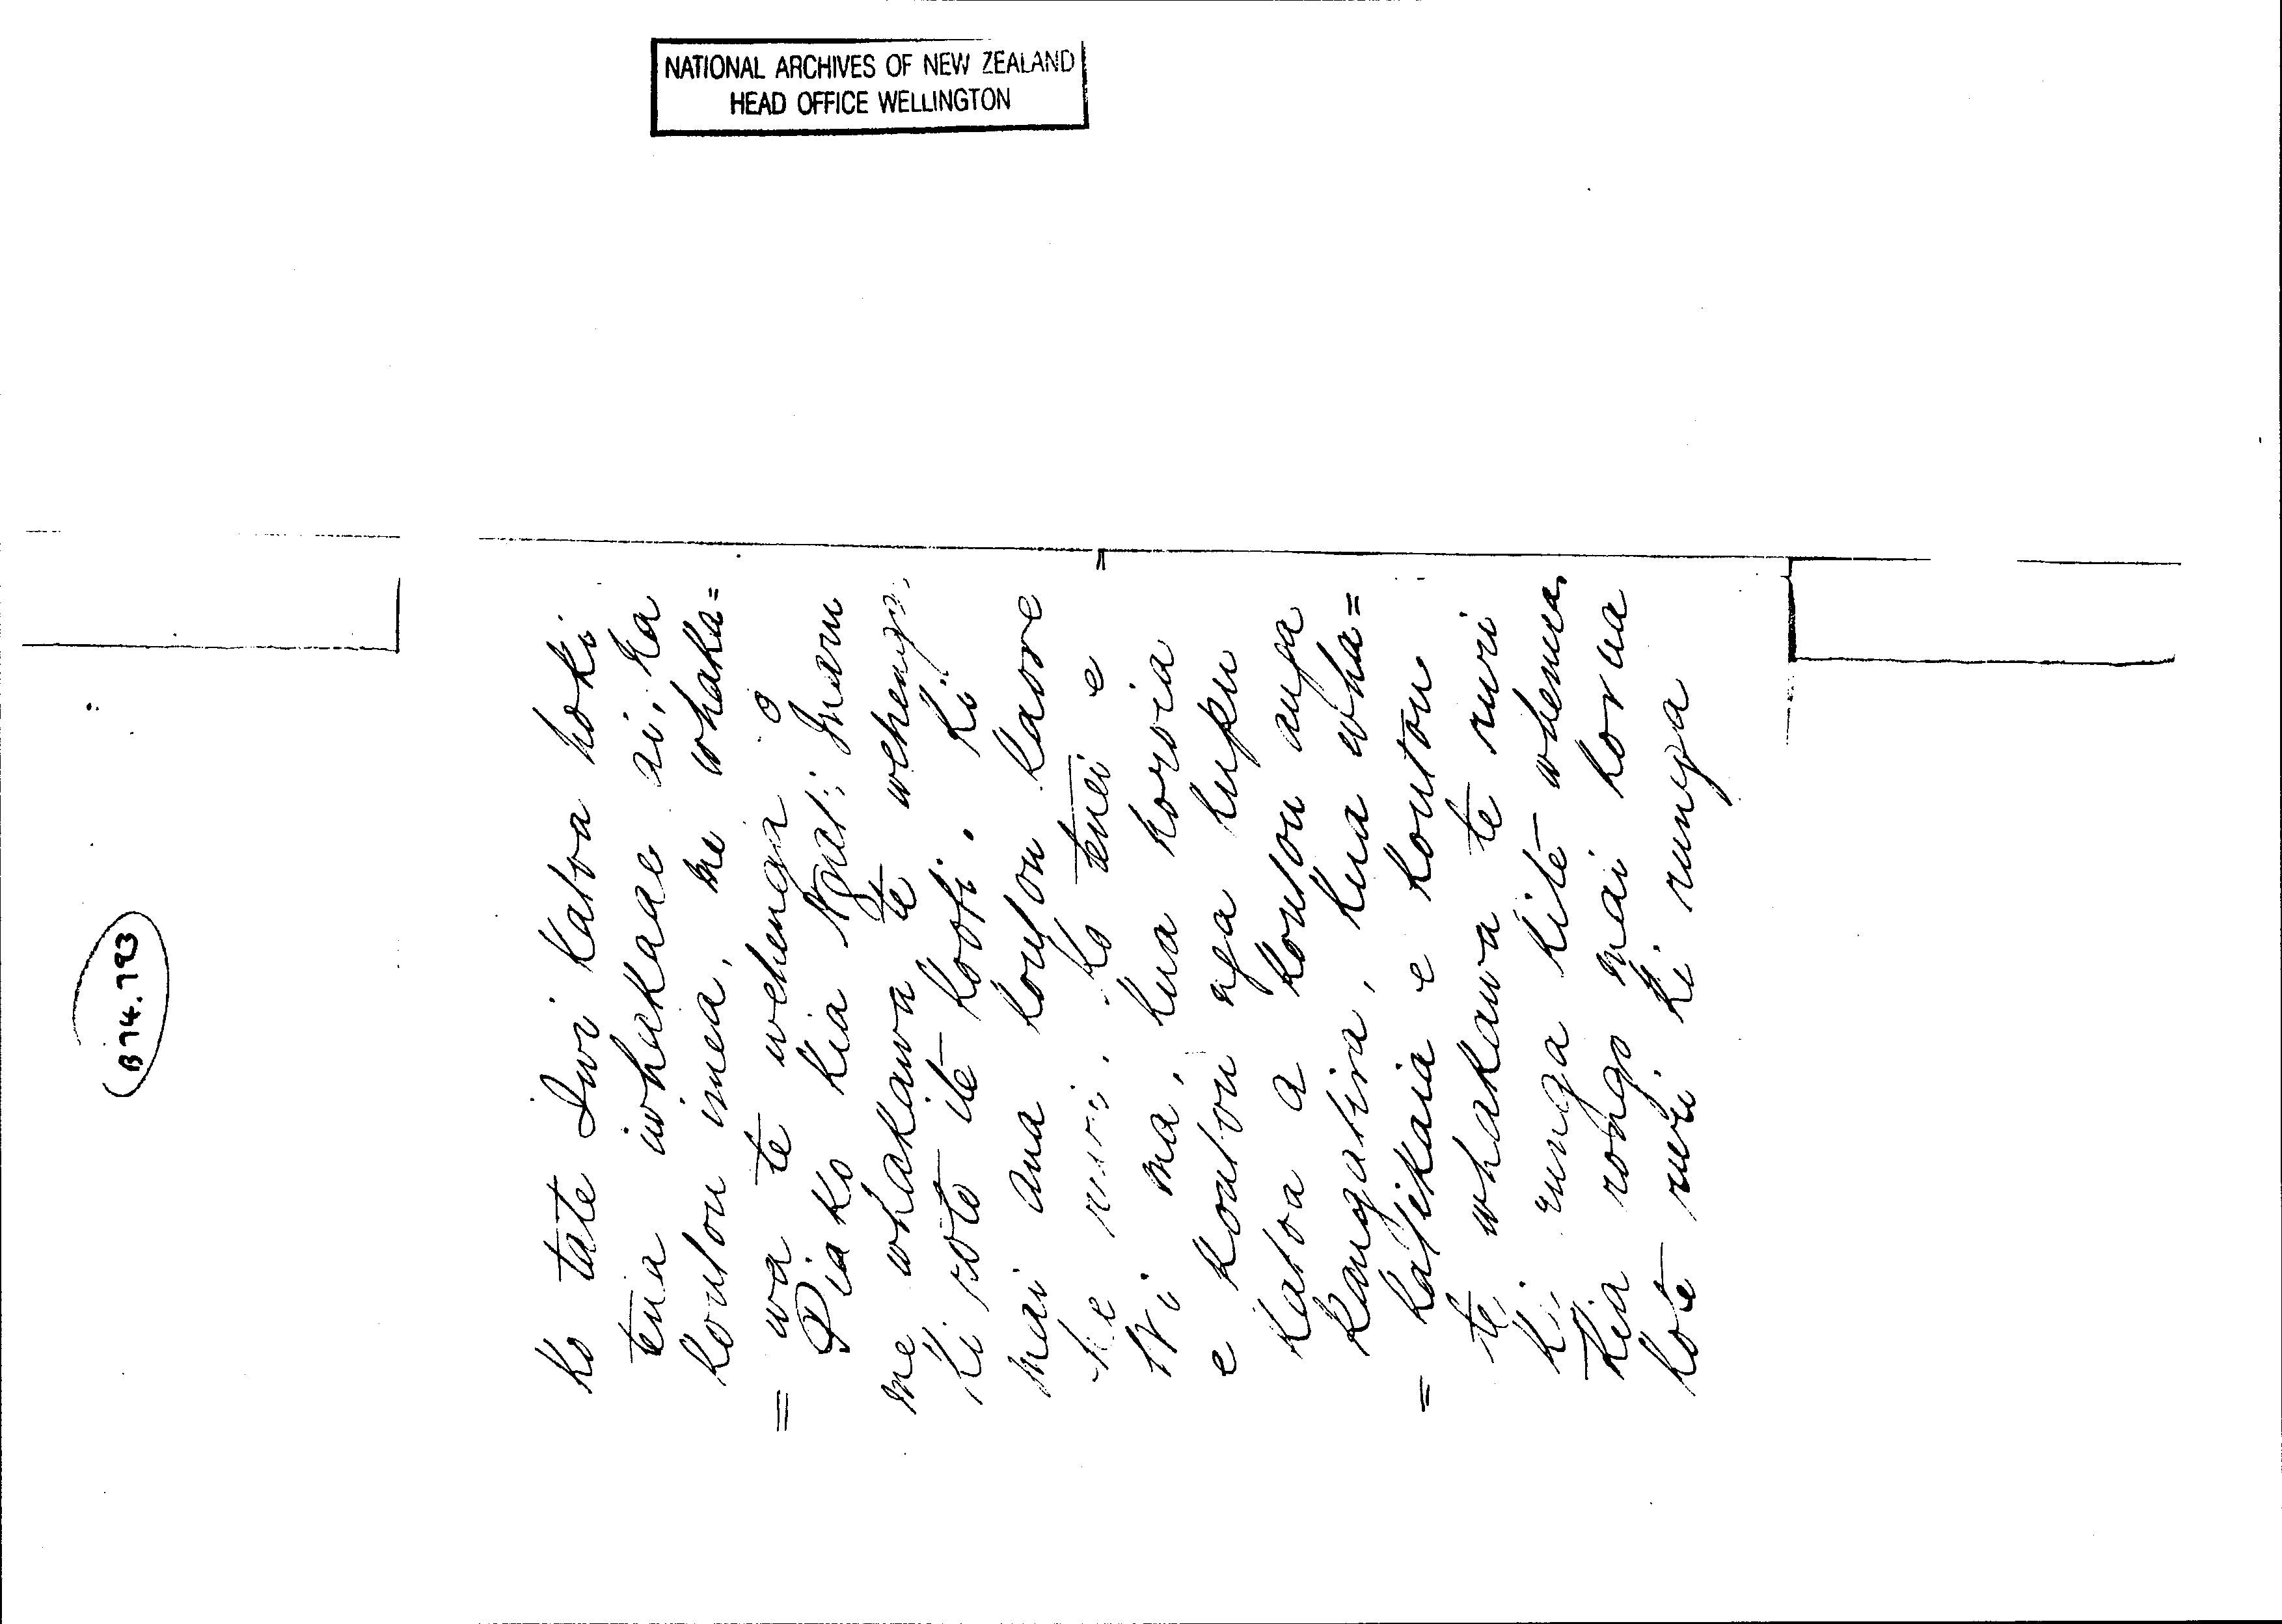 NATIONAL ARCHIVES OF NEW ZEALAND
HEAD OFFICE WELLINGTON
B74.793
ko tate Iwi katoa hoki
tena iwhakaae ai, ka
koutou imea, me whaka=
= wa te wehenga o
Piako kia Ngati Maru
me whakawa te wehenga,
ki roto ite kooti. Ki
mai ana koutou kaore
he ruri. ko tenei e
Wi ma, kua korvia
e koutou nga kupu
katoa a koutou anga
Rangatira, kua wha=
= katikaia e koutou
te whakawa te ruri
ki runga kite whenua,
Kia rongo mai korua
kote ruri ki runga